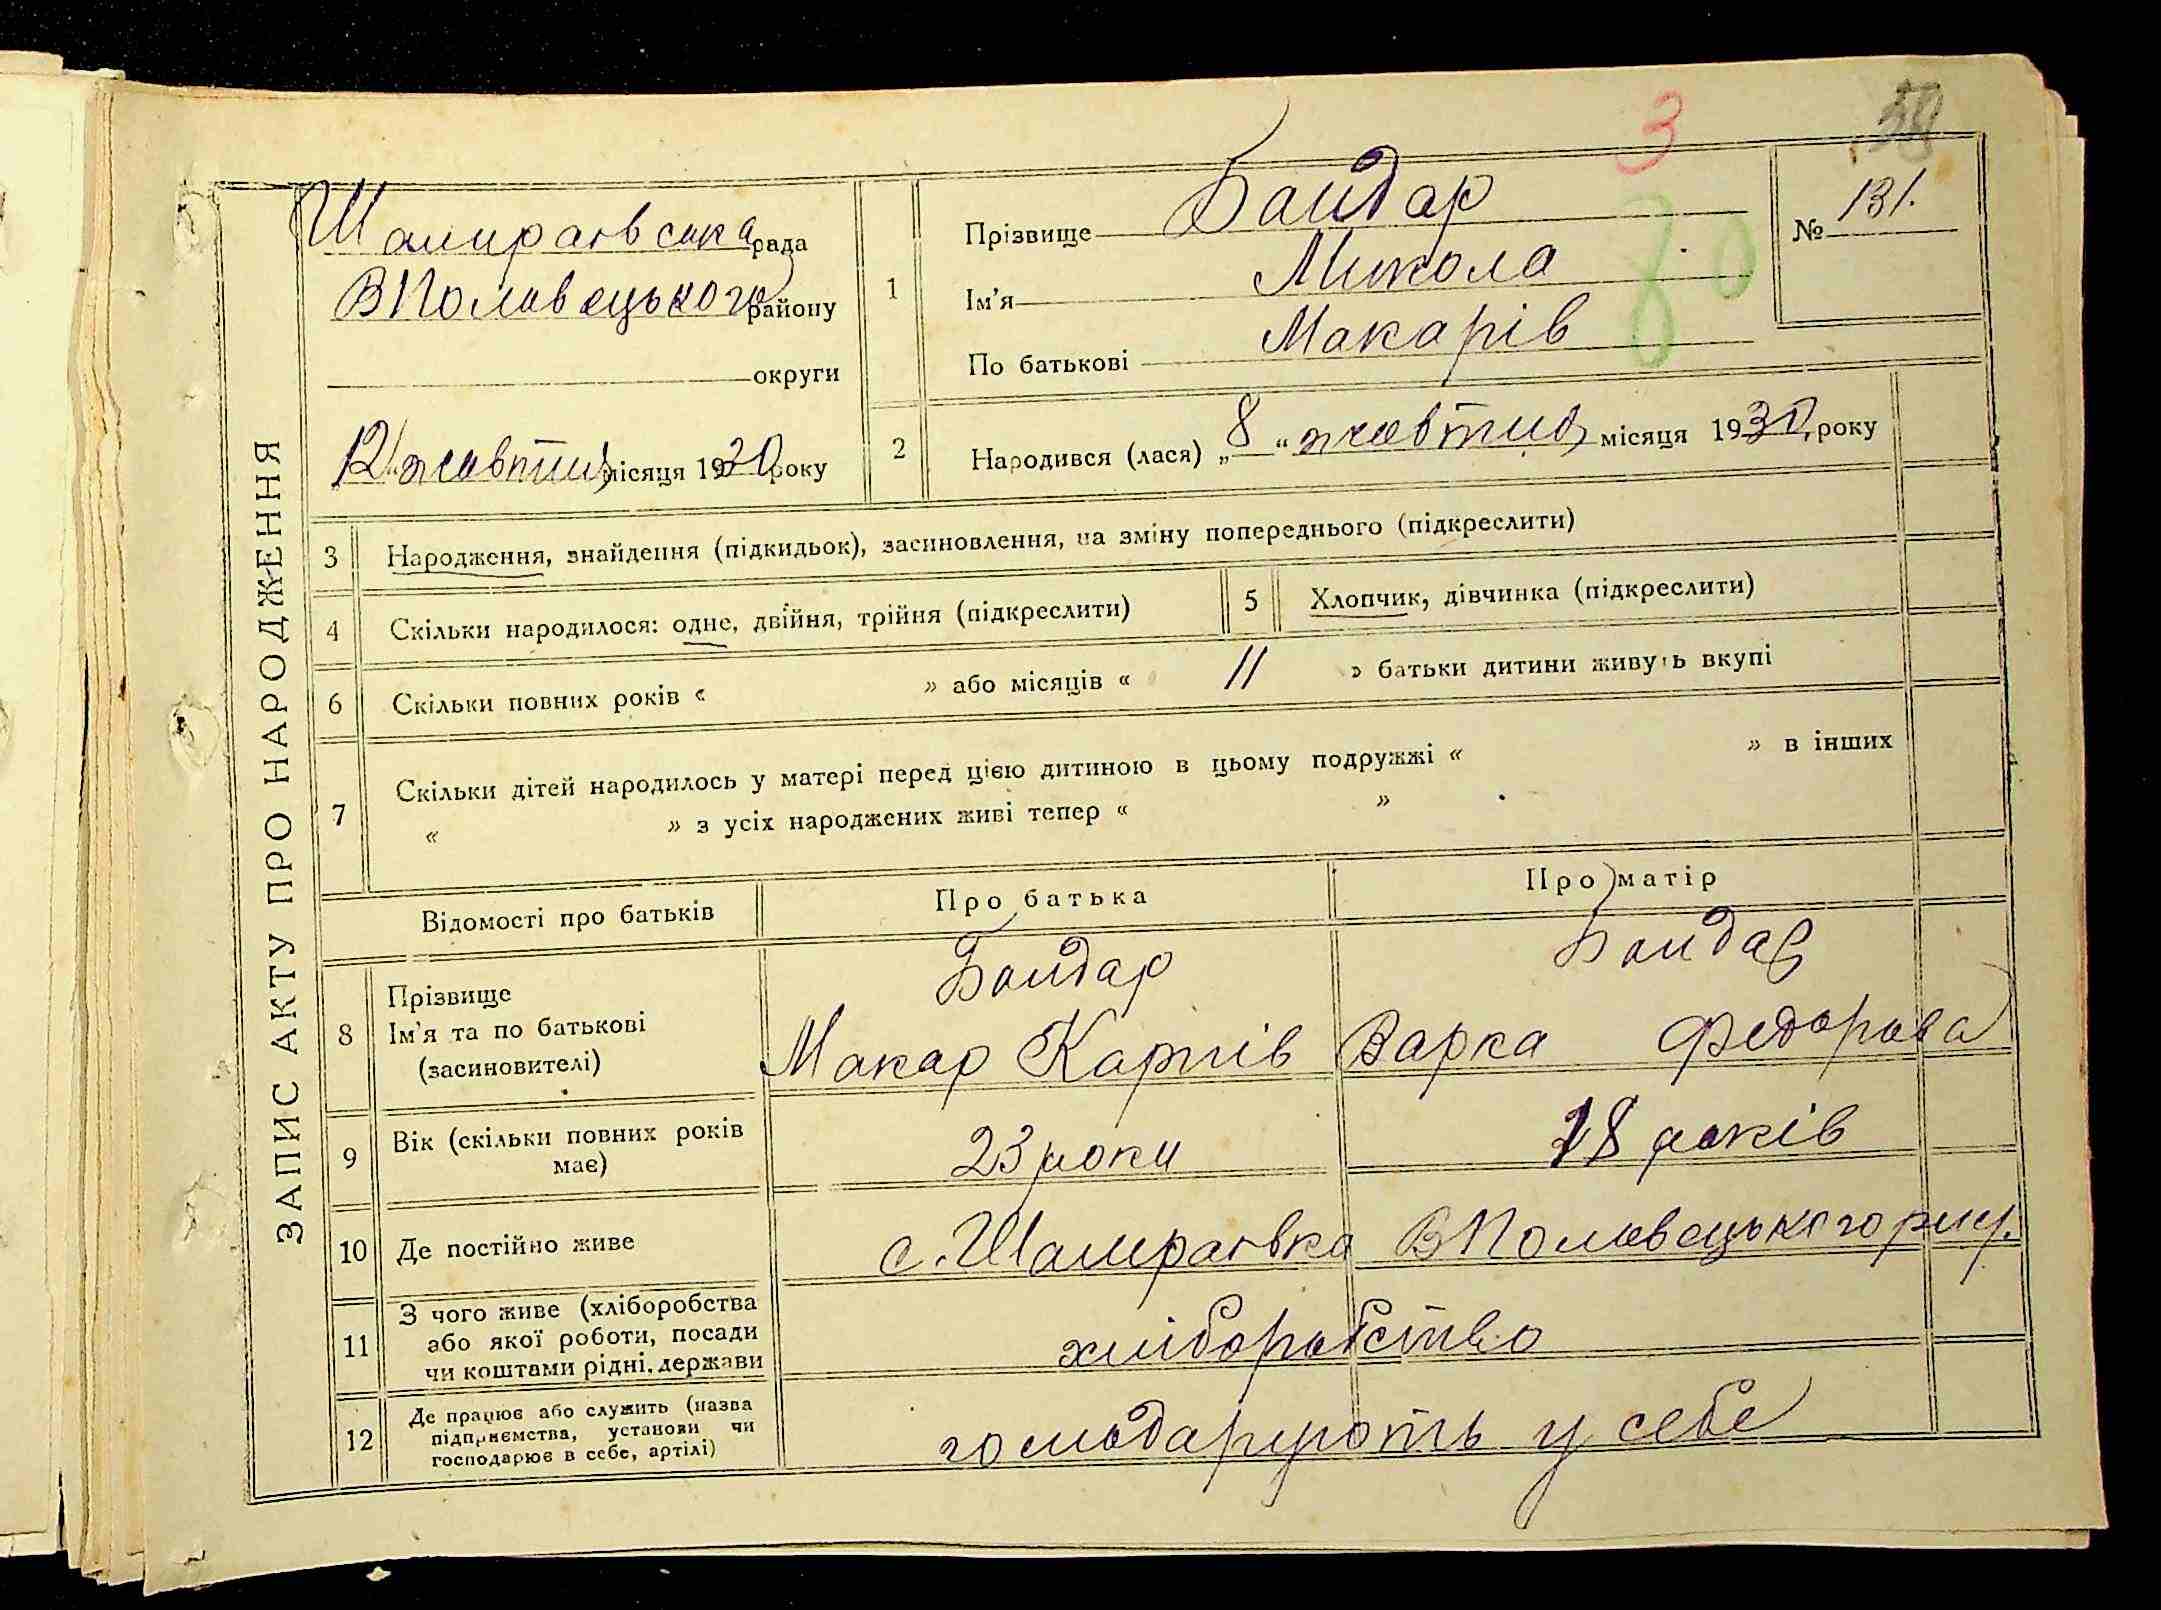 3
58
ЗАПИС АКТУ ПРО НАРОДЖЕННЯ
Шамраєвська рада
ВПоловецького району
округи
12 жовтня місяця 1930 року
1
Прізвище Бондар
Ім'я Микола
По батькові Макарів
80
№ 131.
2
Народився (лася) „8“ жовтня місяця 1930 року
3
Народження, знайдення (підкидьок), засиновлення, на зміну попереднього (підкреслити)
4
Скільки народилося: одне, двійня, трійня (підкреслити)
5
Хлопчик, дівчинка (підкреслити)
6
Скільки повних років « » або місяців « 11 » батьки дитини живуть вкупі
7
Скільки дітей народилось у матері перед цією дитиною в цьому подружжі « » в інших
« » з усіх народжених живі тепер « »
Відомості про батьків
Про батька
Про матір
8
Прізвище
Ім'я та по батькові
(засиновителі)
Бондар
Макар Карпів
Бондар
Варка Федорова
9
Вік (скільки повних років
має)
23 роки
18 років
10
Де постійно живе
с. Шамраєвка ВПоловецького
11
З чого живе (хліборобства
або якої роботи, посади
чи коштами рідні, держави
хліборобство
12
Де працює або служить (назва
підприємства, установи чи
господарює в себе, артілі)
господарують у себе